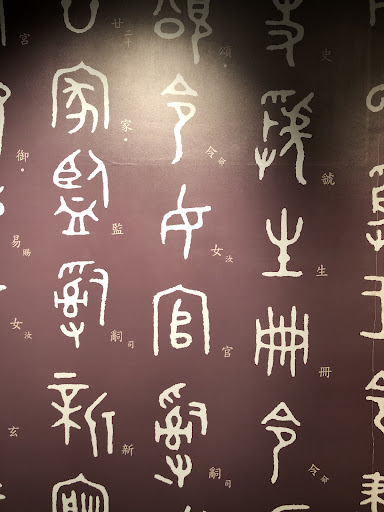 史虢生冊令命
頌。令命女汝官嗣司
廿二十家。監嗣司新
宮御。易賜女汝玄